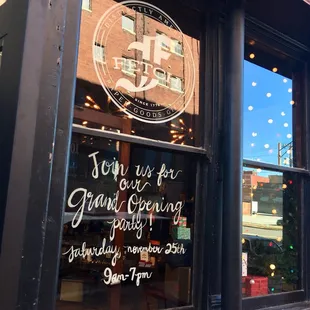 FETCH
SINCE 1776
Join us for
our
Grand Opening
party!
saturday, november 25th
9am-7pm